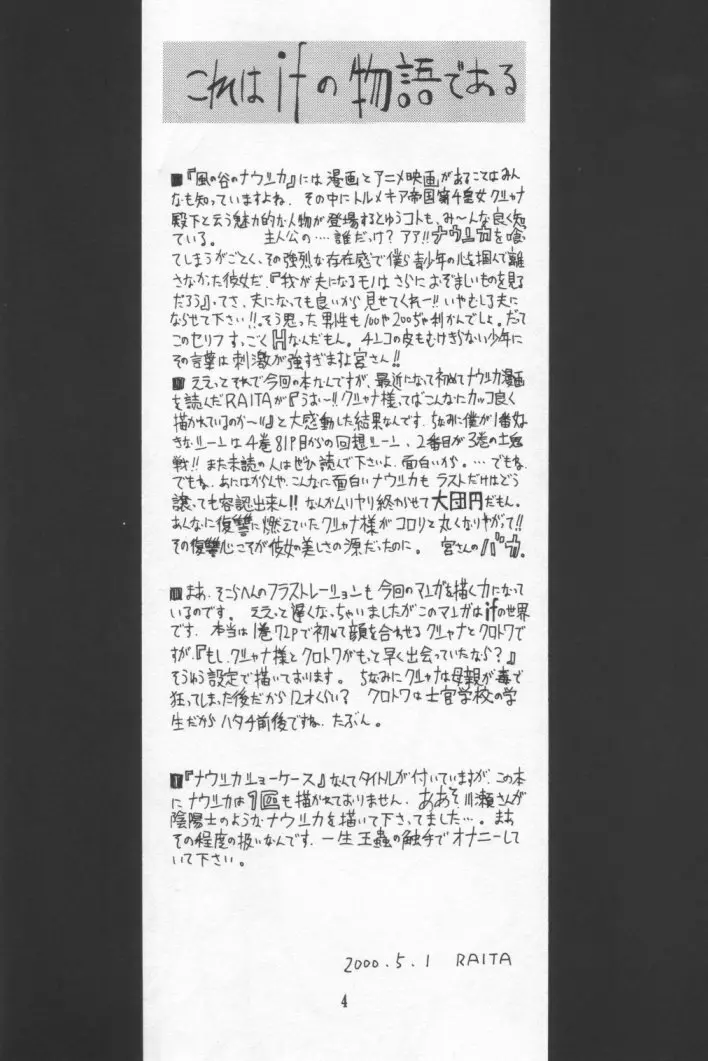 これはifの物語である
■『風の谷のナウシカ』には漫画とアニメ映画があることはみん
なも知っていますよね。その中にトルメキア帝国第4皇女クシャナ
殿下と云う魅力的な人物が登場するとゆうコトも、み〜んな良く知
ている。 主人公の‥‥誰だっけ？アア!!ナウシカを喰っ
てしまうがごとく、その強烈な存在感で僕ら青少年の心を掴んで離
さなかった彼女だ。『我が夫になるモノはさらにおぞましいものを見る
だろう』ってさ、夫になっても良いから見せてくれー!!いやむしろ夫に
ならせて下さい!!。そう思った男性も100や200ぢゃ利かんでしょ。だって
このセリフすっごくHなんだもん。チ〇コの皮もむけきらない少年に
その言葉は刺激が強すぎますよ宮さん!!
■ ええっとそれで今回の本なんですが、最近になって初めてナウシカ漫画
を読んだRAITAが『うお〜!!クシャナ様ってばこんなにカッコ良く
描かれているのか〜!!』と大感動した結果なんです。ちなみに僕が1番好
きなシーンは4巻81P目からの回想シーン、2番目が3巻の土鬼
戦!!また未読の人はぜひ読んで下さいよ、面白いから。‥でもね、
でもね、あにはからんや、こんなに面白いナウシカもラストだけはどう
譲っても容認出来ん!!なんかムリヤリ終わらせて大団円だもん。
あんなに復讐に燃えていたクシャナ様がコロリと丸くなりやがって!!
その復讐心こそが彼女の美しさの源だったのに。 宮さんのバカ。
■まあ、そこらへんのフラストレーションも今回のマンガを描く力になって
いるのです。ええっと遅くなっちゃいましたがこのマンガはifの世界
です。本当は1巻72Pで初めて顔を合わせるクシャナとクロトワで
すが、『もし、クシャナ様とクロトワがもっと早く出会っていたなら？』
そうゆう設定で描いております。ちなみにクシャナは母親が毒で
狂ってしまった後だから12才くらい？ クロトワは士官学校の学
生だからハタチ前後ですね、たぶん。
■『ナウシカショーケース』なんてタイトルが付いていますが、この本
にナウシカは1回も描かれておりません。ああそっ川瀬さんが
陰陽士のようなナウシカを描いて下さってました‥‥。まあ
その程度の扱いなんです。一生王蟲の触手でオナニーして
いて下さい。
2000.5.1 RAITA
4